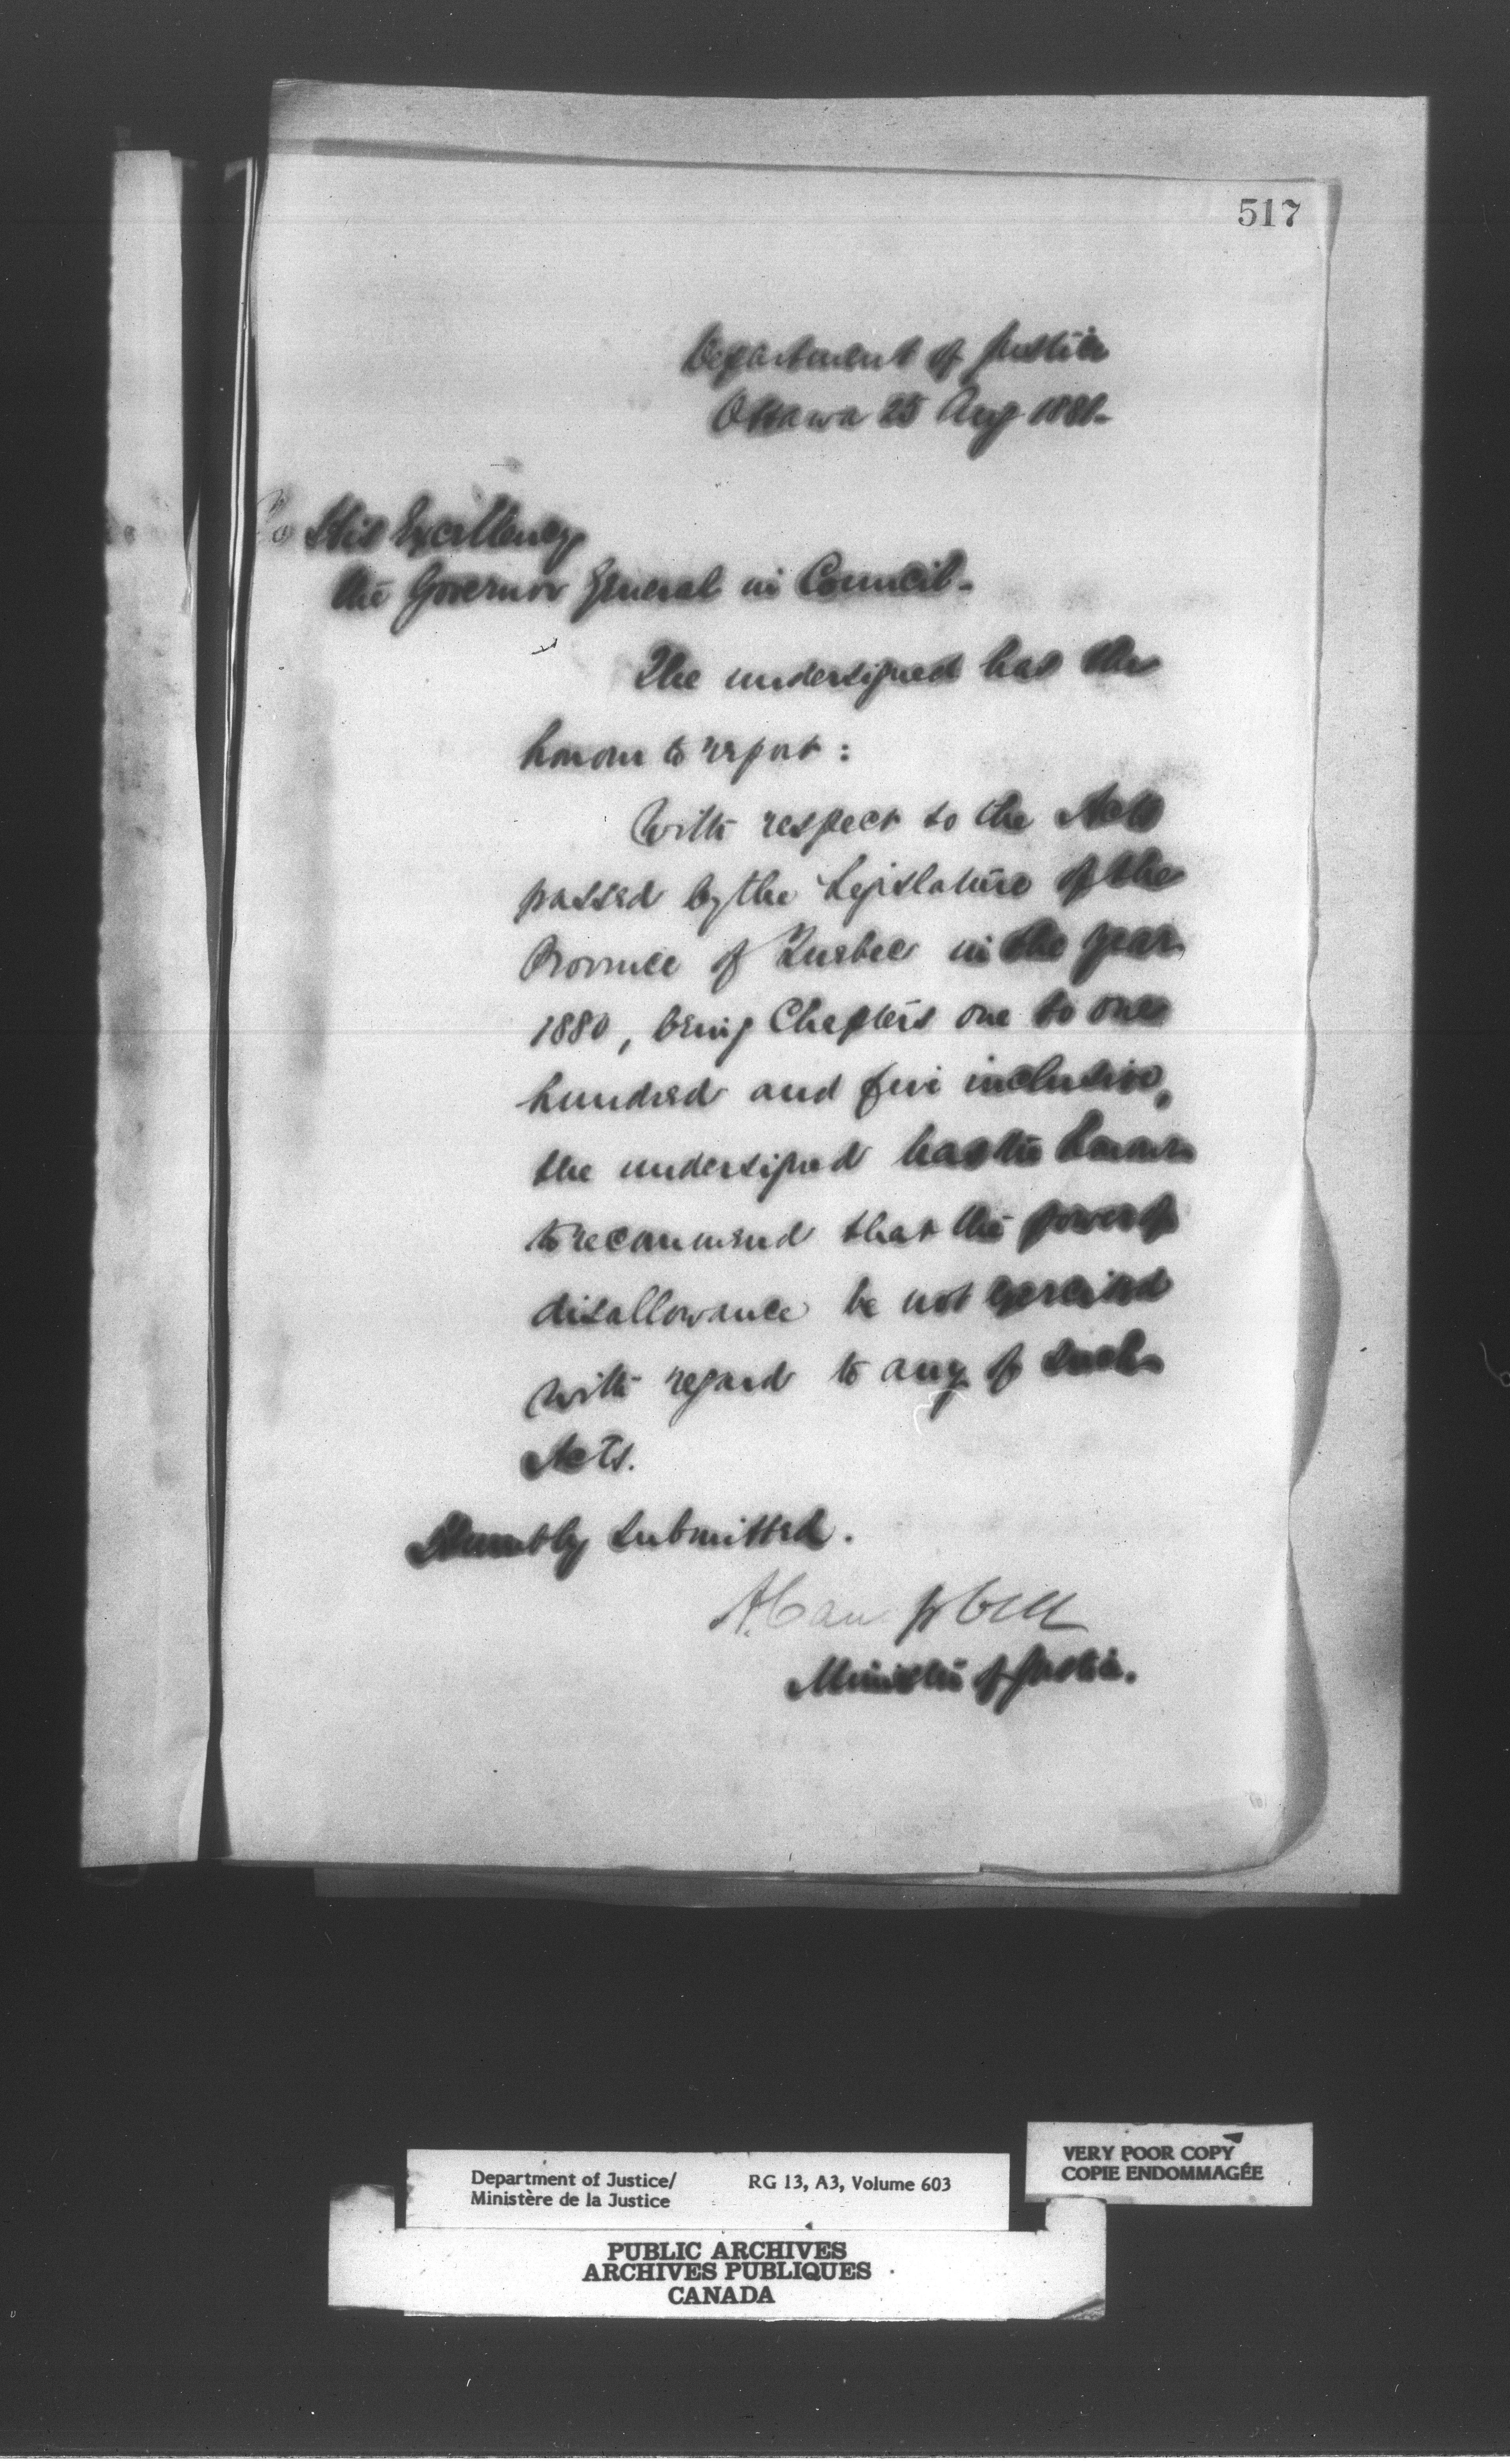 517
Department of Justice
Ottawa 25 Aug 1881-
To His Excellency
the Governor General in Council-
The undersigned has the
honour to report :
With respect to the Acts
passed by the Legislature of the
Province of Quebec in the year
1880, being Chapters one to one
hundred and five inclusive,
the undersigned has the honour
to recommend that the power of
disallowance be not exercised
with regard to any of such
Acts.
Humbly submitted.
A. Campbell
Minister of Justice.
VERY POOR COPY
COPIE ENDOMMAGÉE
Department of Justice/ RG 13, A3, Volume 603
Ministère de la Justice
PUBLIC ARCHIVES
ARCHIVES PUBLIQUES
CANADA